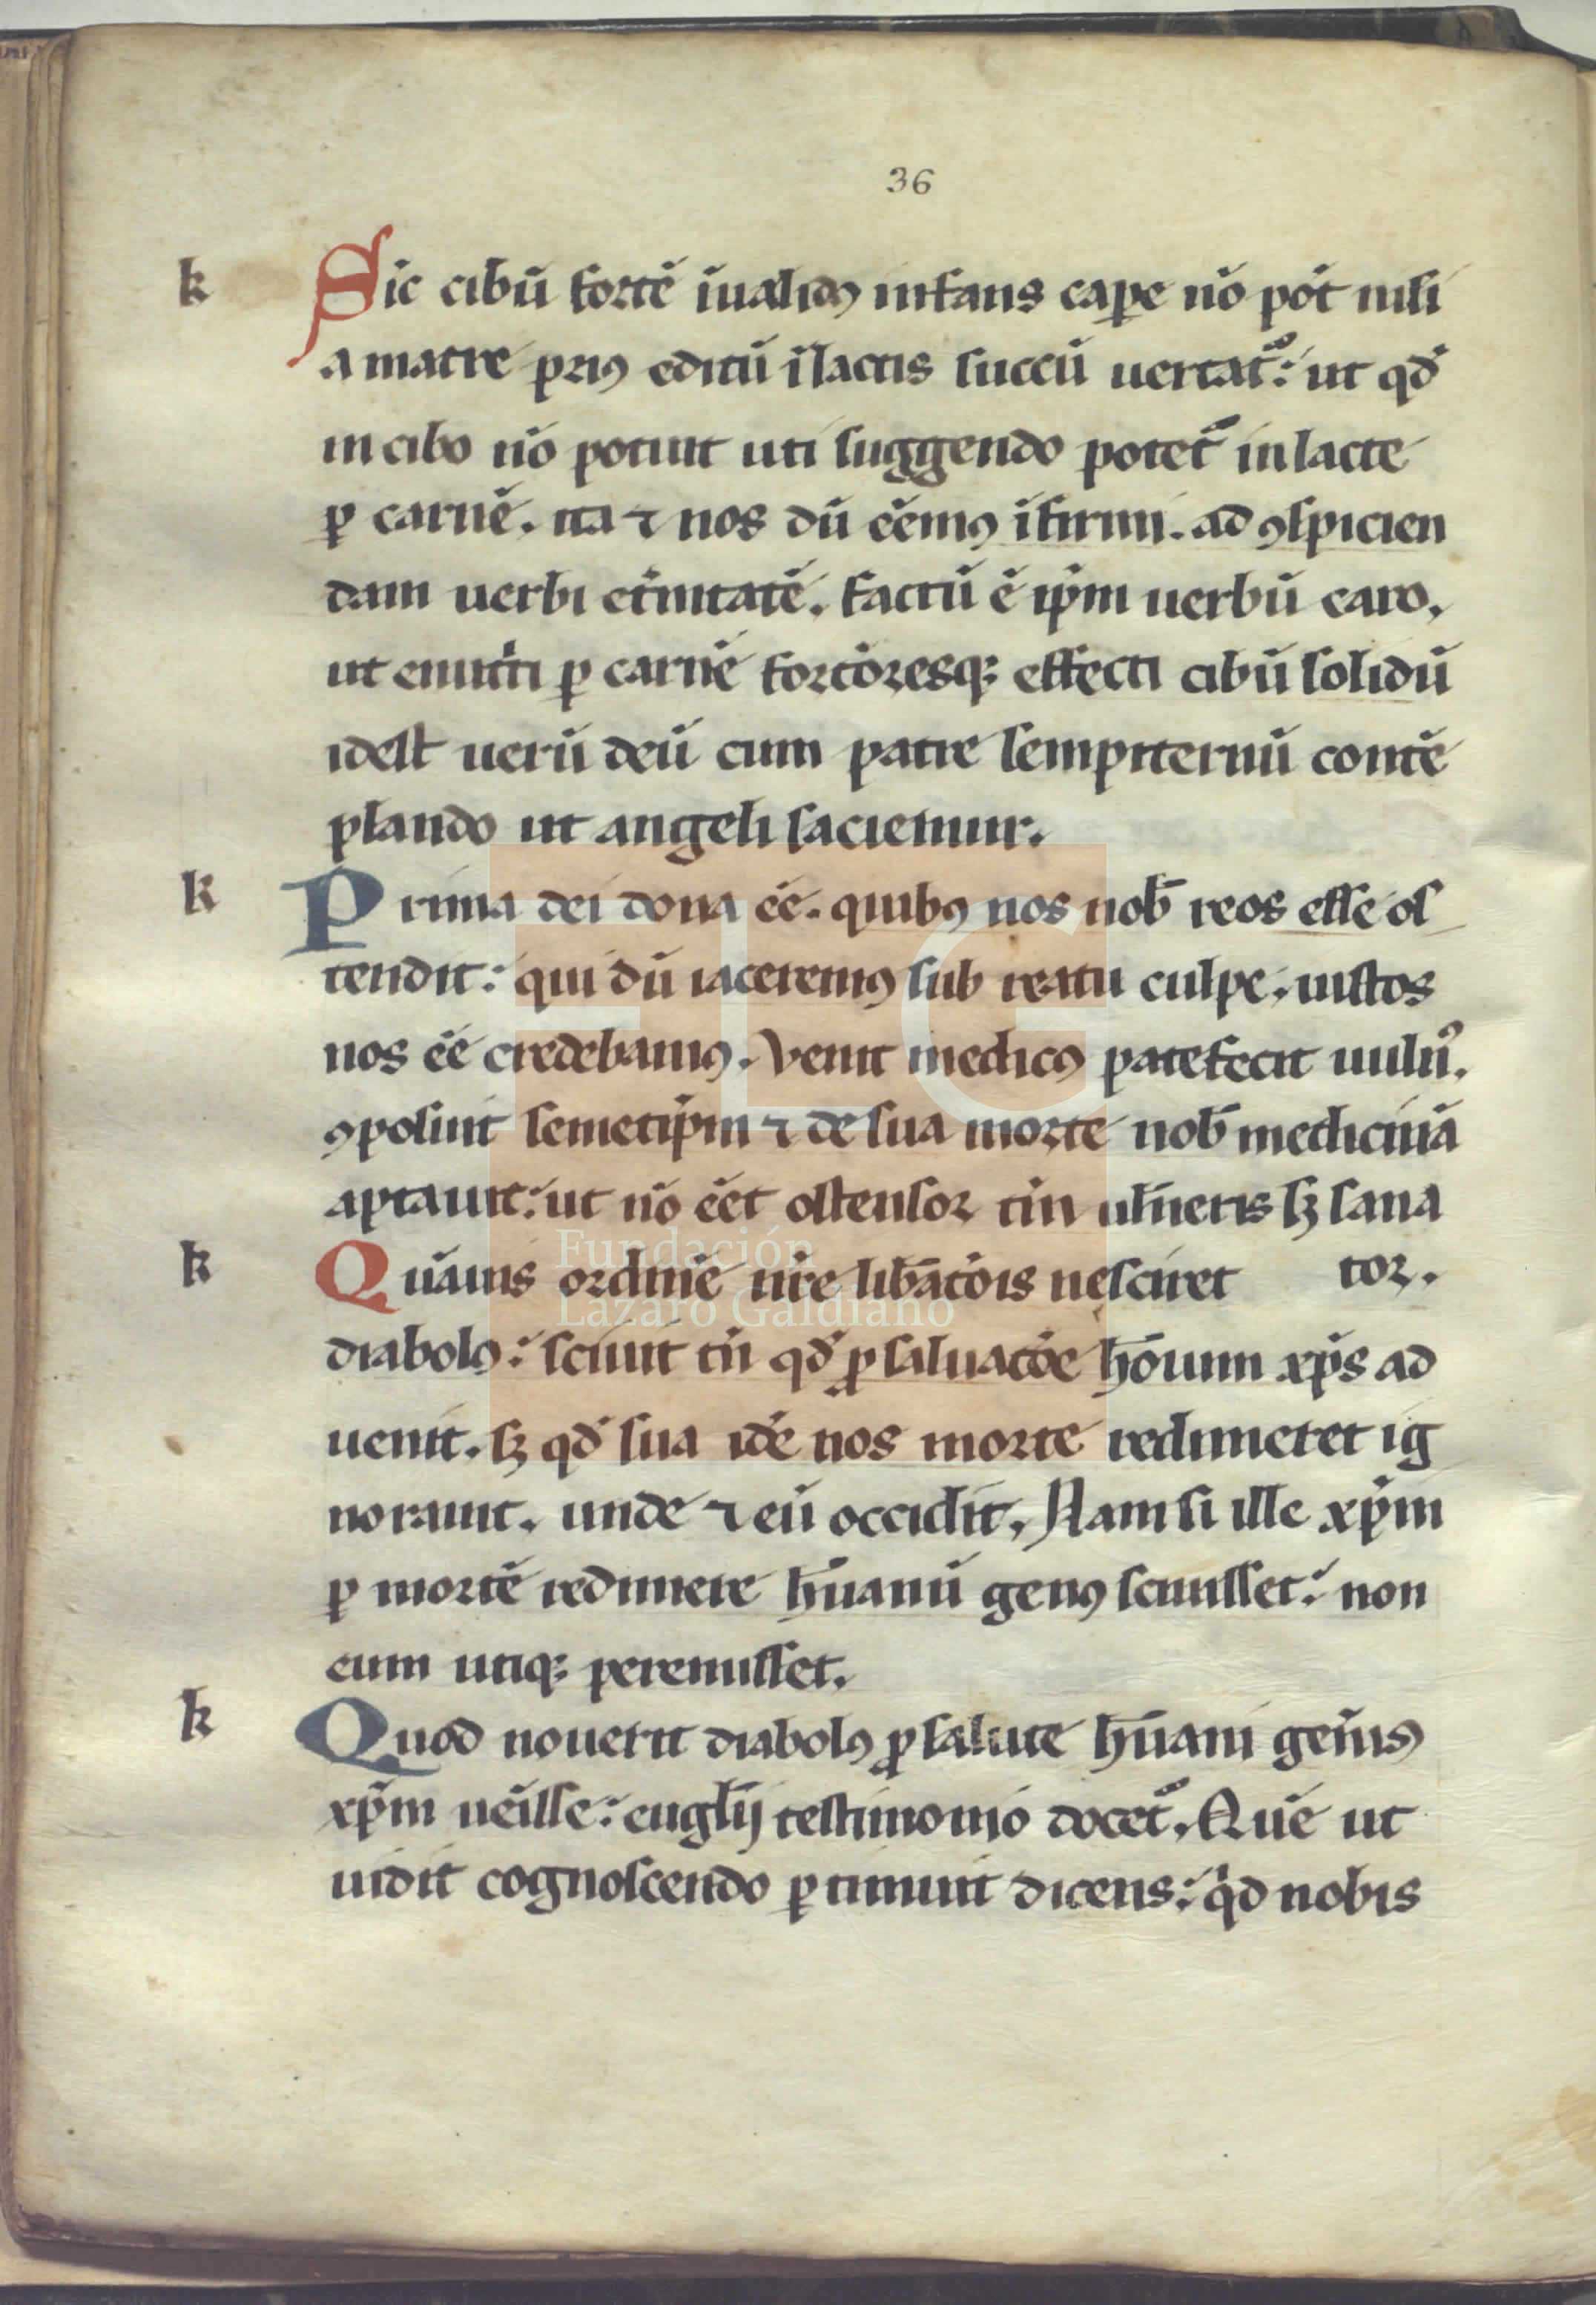 36
k Sic cibū fortē īualidꝰ infans caꝑe nō pōt nisi
a matre priꝰ editū ī lactis succū uertat᷑: ut qd̄
in cibo nō potuit uti suggendo potet᷑ in lacte
ꝑ carnē. ita ⁊ nos dū eēmꝰ īfirmi. ad ꝯspicien
dam uerbi et̄nitatē. factū ē ip̄m uerbū caro,
ut enut̄ti ꝑ carnē fortioresqꝫ effecti cibū solidū
idest uerū deū cum patre sempiternū contē
plando ut angeli saciemur.
k Prima dei dona eē. quibꝰ nos nob̄ reos esse os
tendit: qui dū iaceremꝰ sub reatu culpe. iustos
nos eē credebamꝰ. Venit medicꝰ patefecit uuln᷒.
ꝯposuit semetip̄m ⁊ de sua morte nob̄ medicinā
aptauit: ut nō eēt ostensor tm̄ uln̄eris sꝫ sana
tor.
k Quāuis ordinē nr̄e lib̄atōis nesciret
diabolꝰ: sciuit tn̄ qd̄ ꝓ saluatōe hōium xp̄s ad
uenit. sꝫ qd̄ sua idē nos morte redimeret ig
norauit. unde ⁊ eū occidit. Nam si ille xp̄m
ꝑ mortē redimere hūanū genꝰ sciuisset: non
eum utiqꝫ peremisset.
k Quod nouerit diabolꝰ ꝓ salute hūani gen̄is
xp̄m uēisse: euglij testimonio docet᷑. Quē ut
uidit cognoscendo ꝑtimuit dicens: qd nobis
FLG
Fundación
Lázaro Galdiano